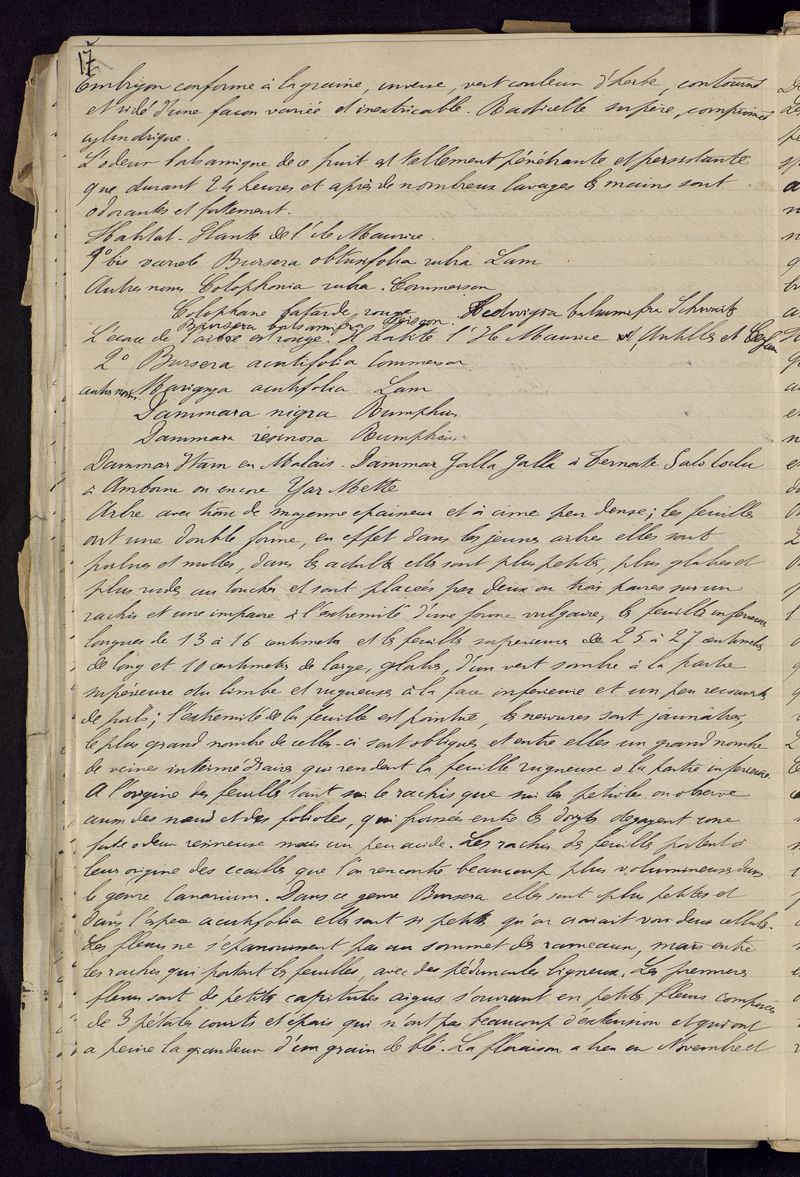 17
Embryon conforme à la graine, inverse, vert couleur d'herbe, contourné
et ridé d'une façon variée et inextricable. Radicelle supère, comprimée
cylindrique.
L'odeur balsamique de ce fruit est tellement pénétrante et persistante
que durant 24 heures et après de nombreux lavages les mains sont
odorantes et fortement.
Habitat - Hante de l'île Maurice.
1º bis varieté Bursera obtusifolia rubra Lam
Autres noms Colophonia rubra. Commerson
Colophane batarde rouge Hedwigia balsamifera Schwartz
Bursera balsamifera Persoon.
L'écorce de l'arbre est rouge. Il habite l'Ile Maurice, Antilles et Ceylan
2º Bursera acutifolia Commerson
autres noms Marignya acutifolia Lam
Dammara nigra Rumphius
Dammara résinosa Rumphius
Dammar Itam en Malais. Dammar Galla Galla à Ternate
à Amboine ou encore Yar Mette
Arbre avec tronc de moyenne epaisseur et à cime peu dense; les feuilles
ont une double forme, en effet dans les jeunes arbres elles sont
poilues et molles, dans les adultes elles sont plus petites, plus glabres et
plus rudes au toucher et sont placées par deux ou trois paires sur un
rachis et une impaire à l'extremité d'une forme vulgaire, les feuilles inferieures
longues de 13 à 16 centimetres et les feuilles superieures de 25 à 27 centimetres
de long et 10 centimetres de large, glabres, d'un vert sombre à la partie
supérieure du limbe et rugueuses à la face inferieure et un peu recouvertes
de poils; l'extremité de la feuille est pointue, les nervures sont jaunâtres,
le plus grand nombre de celles-ci sont obliques et entre elles un grand nombre
de veines intermédiaires qui rendent la feuille rugueuse à la partie inferieure.
A l'origine des feuilles tant sur le rachis que sur les petioles on observe
aussi des nœuds et des folioles, qui froissées entre les doigts degagent une
forte odeur resineuse mais un peu acide. Les rachis des feuilles portent à
leur origine des ecailles que l'on rencontre beaucoup plus volumineuses dans
le genre Canarium. Dans ce genre Bursera elles sont plus petites et
dans l'espece acutifolia elles sont si petites qu'on croirait voir deux cellules.
Les fleurs ne s'epanouissent pas au sommet des rameaux, mais entre
les rachis qui portent les feuilles, avec des pédoncules ligneux. Les premieres
fleurs sont de petits capitules aigus s'ouvrant en petites fleurs composées
de 3 pétales courts et épais qui n'ont pas beaucoup d'extension et qui ont
a peine la grandeur d'un grain de blé. La floraison a lieu en Novembre et